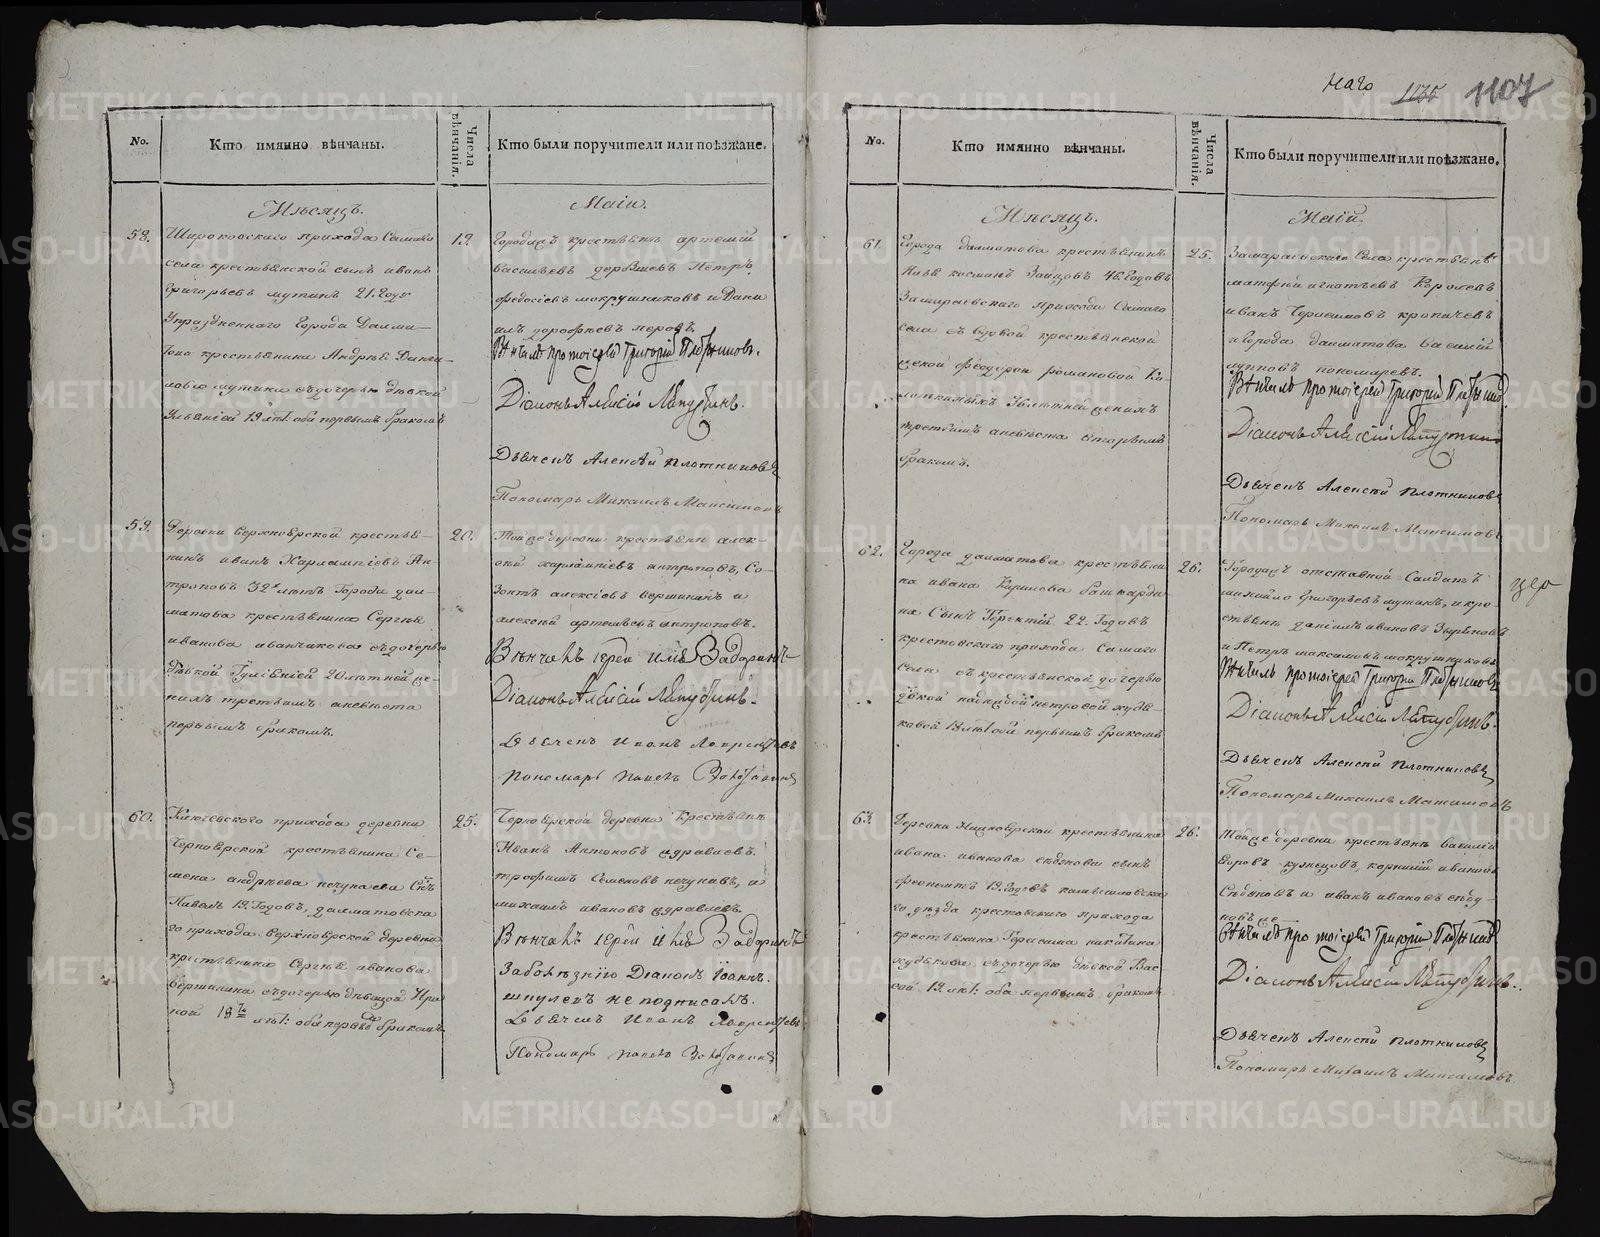 наго 1135 1107
No.
Кто имянно вѣнчаны.
Числа вѣнчанія.
Кто были поручители или поѣзжане.
Мѣсяцъ.
Маія.
58.
Широковскаго прихода Самаго
села крестьянской сынъ иванъ
Григорьевъ мутинъ 21. Году
Упраздненнаго Города Далма-
това крестьянина Андрѣя Дани-
лова мутина съдочерью дѣвкой
Ульяніей 19 лѣт. оба первымъ бракомъ
19.
Городцъ крестьянъ артемій
васильевъ Петръ
федосѣевъ мокрушниковъ и Дани
илъ дорофѣевъ перовъ.
Вѣнчалъ протоіерей Григорій Плотниковъ.
Діаконъ Алексій Лапутинъ.
Дьячекъ Алексѣй Плотниковъ
Пономарь Михаилъ Максимовъ
59.
Деревни Верхноярской крестья-
нинъ иванъ Харлампіевъ Ан-
троповъ 32х лѣтъ Города дал-
матова крестьянина Сергѣя
иванова иванчикова съдочерью
дѣвкой 20 лѣтней же-
нихъ третьимъ аневѣста
первымъ бракомъ.
20.
Тойже деревни крестьяне алек-
сѣй харлампіевъ антроповъ, Со-
зонтъ алексѣевъ вершининъ и
алексѣй артемьевъ антроповъ.
Вѣнчалъ іерей Илія Задоринъ
Діаконъ Алексій Лапутинъ.
Дьячекъ Иванъ Лаврентьевъ
Пономарь Павелъ
60.
Ключевского прихода деревни
Черноярской крестьянина Се-
мена андрѣева пичугаева Сынъ
Павелъ 19. Годовъ, далматовска
го прихода Верхноярской деревни
крестьянина Сергѣя иванова
Вершинина съдочерью дѣвицой Ири
ной 18ти лѣт: оба первымъ бракомъ
25.
Черноярской деревни Крестьяне
Иванъ Антоновъ журавлевъ.
трофимъ Семеновъ пичугинъ, и
михаилъ ивановъ журавлевъ.
Вѣнчалъ іерей Илія Задоринъ
Заболѣзнію Діаконъ Іоаннъ.
шпулевъ не подписалъ.
Дьячекъ Иванъ Лаврентьевъ
Пономарь Павелъ
No.
Кто имянно вѣнчаны.
Числа вѣнчанія.
Кто были поручители или поѣзжане.
Мѣсяцъ.
Маій
61.
Города далматова крестьянинъ
Илья косминъ Зайцовъ 46. Годовъ
Замараевскаго прихода Самаго
села съ вдовой крестьянской
женой феодорой романовой
женихъ
третьимъ аневѣста вторымъ
бракомъ.
25.
Замараевскаго Села крестьяне
матфѣй игнатьевъ Королевъ
иванъ Герасимовъ кропачевъ
иГорода далматова василій
пономаревъ.
Вѣнчалъ протоіерей Григорій Плотниковъ
Діаконъ Алексій Лапутинъ
Дьячекъ Алексѣй Плотниковъ
Пономарь Михаилъ Максимовъ
62.
Города далматова крестьяни-
на ивана Кирилова башкарди
на Сынъ Терентій 22. Годовъ
крестовскаго прихода Самаго
Села съкрестьянской дочерью
дѣвкой петровой худя-
ковой 19 лѣт оба первымъ бракомъ
26.
Городцъ отставной Салдатъ
михайло Григорьевъ мутинъ, и кре-
стьяне даніилъ ивановъ Зыряновъ
и Петръ максимовъ мокрушниковъ
Вѣнчалъ протоіерей Григорій Плотниковъ
Діаконъ Алексій Лапутинъ.
Дьячекъ Алексѣй Плотниковъ
Пономарь Михаилъ Максимовъ
63.
Деревни Нижноярской крестьянина
ивана иванова сынъ
феопемптъ 19. Годовъ камышловска
го уѣзда крестовскаго прихода
крестьянина Герасима никитина
худякова съдочерью дѣвкой Вас
сой 19 лѣт: оба первымъ бракомъ
26.
Тойже деревни крестьяне василій
Егоровъ кузнецовъ, корнилій ивановъ
и иванъ ивановъ
Вѣнчалъ протоіерей Григорій Плотниковъ
Діаконъ Алексій Лапутинъ.
Дьячекъ Алексѣй Плотниковъ
Пономарь Михаилъ Максимовъ
METRIKI.GASO-URAL.RU